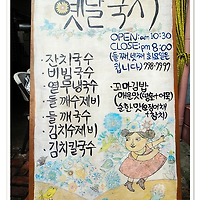 옛날국시
OPEN:am 10:30
CLOSE:pm 8:00
(둘째, 넷째 화요일은
쉽니다) 778-7999
· 잔치국수
· 비빔국수
· 열무냉국수
· 들깨수제비
· 들깨국수
· 김치수제비
· 김치칼국수
· 꼬마김밥
매운맛(땡초+어묵)
순한맛(
참치)